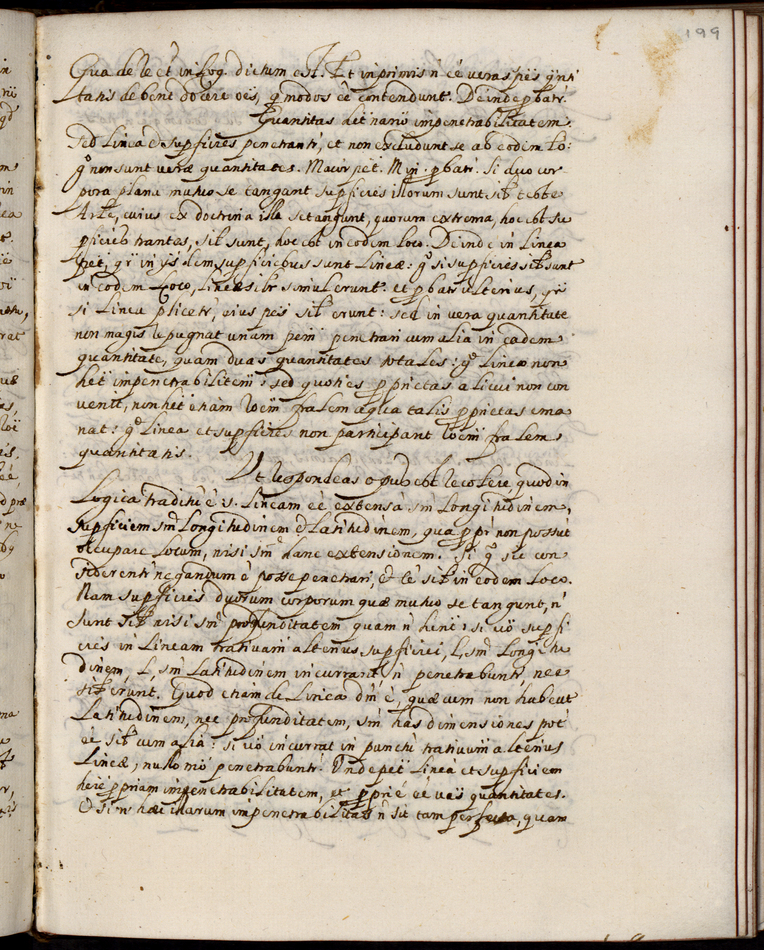 199
Qua de re et in Log. dictum est. Et inprimis n̄ eē veras spēs qn̄ti
tatis debent docere oēs, q̨ modos eē contendunt. Deinde ꝓbatr.
Quantitas det̄ nario impenetrabilitatem.
sed Linea et supficies penetrantr, et non excludunt se ab eodem Lo:
gº non sunt verae quantitates. Maior pet. Min. ꝓbatr. Si duo cor
pora plana mutuo se tangant supficies illorum sunt sil̄ teste
Arle, cuius ex doctrina illa se tangunt, quorum extrema, hoc est su
pficies sil̄ sunt, hoc est in eodem Loco. Deinde in Linea
pet, qr̄ in ijsdem supficiebus sunt Lineae: gº si supficies sil̄ sunt
in eodem Loco, Lineae sil̄r simul erunt. et ꝓbatr ulterius, qr̄
si Linea plicetr, eius ptēs sil̄ erunt: sed in vera quantitate
non magis repugnat unam ptem penetrari cum alia in eadem
quantitate, quam duas quantitates totales: gº Lineae non
hēt impenetrabilitēm: sed quoties ꝓprietas alicui non con
venit, non hēt etiam rōem fralem a qua talis ꝓprietas ema
nat: gº Linea et supficies non participant rōem fralem
quantitatis.
Ut respondeas opus est recolere quod in
Logica traditū ē .s. Lineam eē extensā sm̄ Longitudinem,
supficiem sm̄ Longitudinem et Latitudinem, qua ꝓpr̄ non possūt
occupare Locum, nisi sm̄ hanc extensionem. Si gº sic con
siderentr negandum ē posse penetrari, et eē sil̄ in eodem Loco.
Nam supficies duorum corporum quae mutuo se tangunt, n̄
sunt sil̄ nisi sm̄ profunditatem quam n̄ hēnt: si vō supfi
cies in Lineam alterius supficiei, L, sm̄ Longitu
dinem, L, sm̄ Latitudinem incurrant, n̄ penetrabuntr, nec
sil̄ erunt. Quod etiam de Linea dm̄ ē, quae cum non habeat
Latitudinem, nec profunditatem, sm̄ has dimensiones pot̄
eē sil̄ cum aliā: si vō incurrat in punctū alterius
Lineae, nullo mō penetrabuntr. Unde pet̄ Lineā et supficiem
hēre ꝓpriam impenetrabilitatem, et ꝓprie eē veras quantitates.
Et si n̄ haec illarum impenetrabilitas n̄ sit tam perfecta, quam